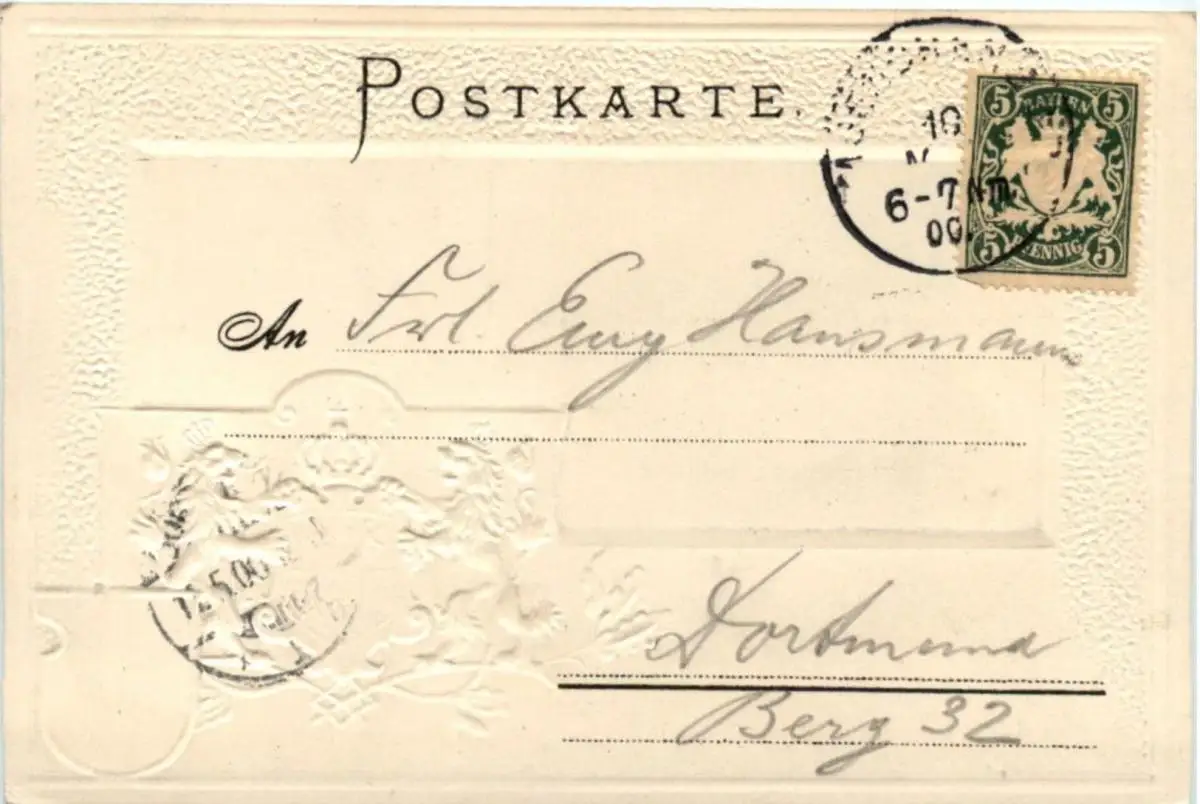 POSTKARTE.
10
6-7 NM.
00.
5 BAYERN 5
5 PFENNIG 5
An Frl. Emy Hansmann
5.00
Dortmund
Berg 32